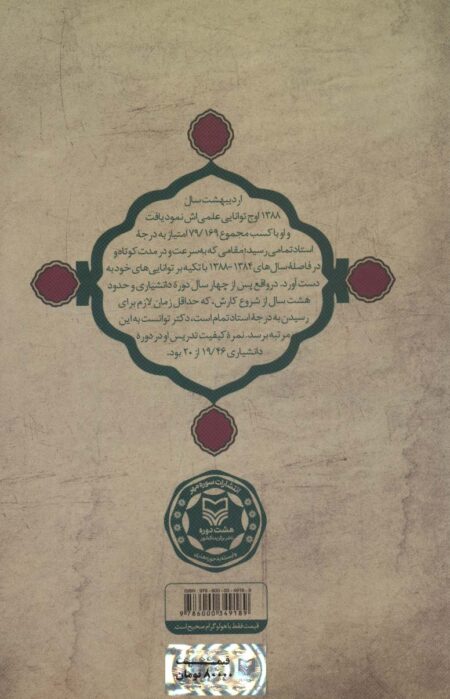 اردیبهشت سال
۱۳۸۸ اوج توانایی علمی‌اش نمود یافت
و او با کسب مجموع ۷۹/۱۶۹ امتیاز به درجهٔ
استادتمامی رسید؛ مقامی که به‌سرعت و در مدت کوتاه و
در فاصلهٔ سال‌های ۱۳۸۴-۱۳۸۸ با تکیه بر توانایی‌های خود به
دست آورد. در واقع پس از چهار سال دورهٔ دانشیاری و حدود
هشت سال از شروع کارش، که حداقل زمان لازم برای
رسیدن به درجهٔ استاد تمام است، دکتر توانست به این
مرتبه برسد. نمرهٔ کیفیت تدریس او در دورهٔ
دانشیاری ۱۹/۴۶ از ۲۰ بود.
انتشارات سوره مهر
هشت دوره
ناشر برگزیده کشور
وابسته به حوزه هنری
9 786000 349189
قیمت فقط با هولوگرام صحیح است.
قیمت
۸۰۰۰۰ تومان